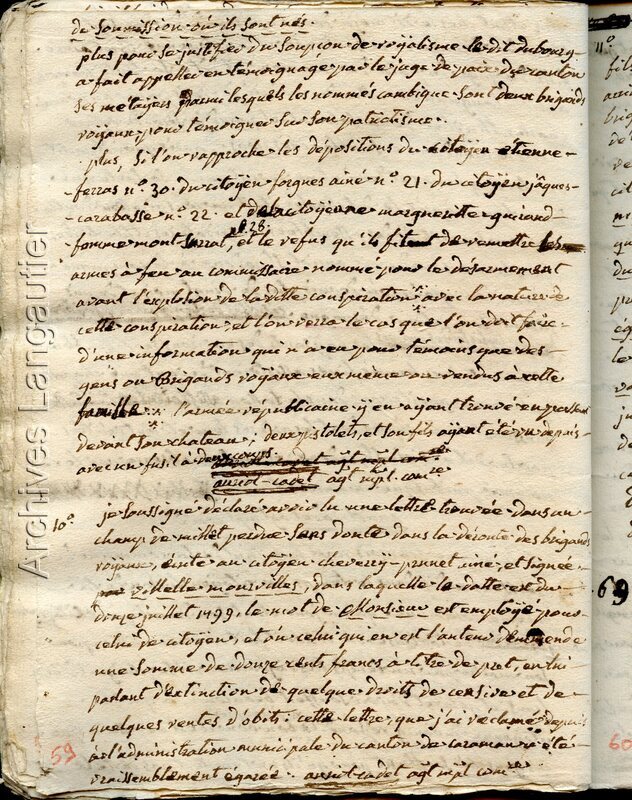 de soumission où ils sont nés.
plus pour se justifier du soupçon de royalisme le dit dubourg
a fait appeller en témoignage par le juge de paix du canton
ses metayers parmi lesquels les nommés cambigue sont deux brigands
royaux, pour témoigner sur son patriotisme.
plus, si l'on rapproche les dépositions du citoyen étienne
ferras n.º 30. du citoyen forgues ainé n.º 21. du citoyen jâques
carabasse n.º 22. et de la citoyenne margueritte guiraud
femme mont sarrat, nº. 28. et le refus qu'ils firent de remettre les
armes à feu au commissaire nommé pour le désarmement
avant l'explotion de la ditte conspiration avec la nature de
cette conspiration et l'on verra le cas que l'on doit faire
d'une information qui n'a eu pour témoins que des
gens ou Brigands royaux eux même ou vendus à cette
famille l'armée républicaine y en ayant trouvé en passant
devant son chateau, deux pistolets, et son fils ayant été vu depuis
avec un fusil à deux coups.
auriol-cadet agt mpl comre
10º je soussigné déclare avoir lu une lettre trouvée dans un
champ de millet perdue sans doute dans la déroute des brigands
royaux, écrite au citoyen cheverry-prunet, ainé, et signée
villelle mourvilles, dans laquelle la datte est du
douze juillet 1799, le mot de Monsieur est employé pour
celui de citoyen, et où celui qui en est l'auteur demande
une somme de douze cents francs à titre de pret, en lui
parlant d'extinction de quelque droits de censive et de
quelques rentes d'obits: cette lettre, que j'ai réclamé depuis
à l'administration municipale du canton de caraman a été
vraissemblement égarée. auriol-cadet agt mpl comre
59
11º
69
60
Archives Langautier